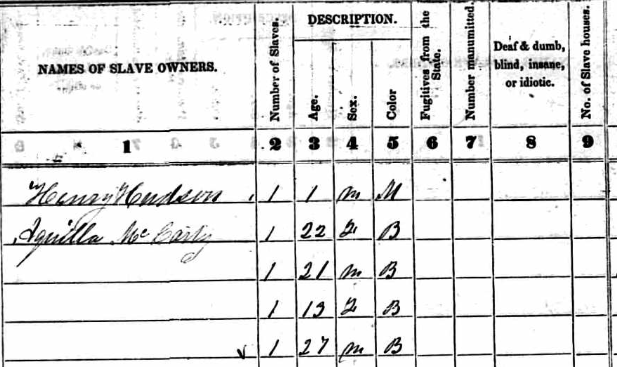 NAMES OF SLAVE OWNERS.
Number of Slaves.
DESCRIPTION.
Age.
Sex.
Color
Fugitives from the State.
Number manumitted.
Deaf & dumb,
blind, insane,
or idiotic.
No. of Slave houses.
1 2 3 4 5 6 7 8 9
Henry Hudson 1 1 m M
Aquilla McCarty 1 22 F B
1 21 m B
1 13 F B
1 27 m B